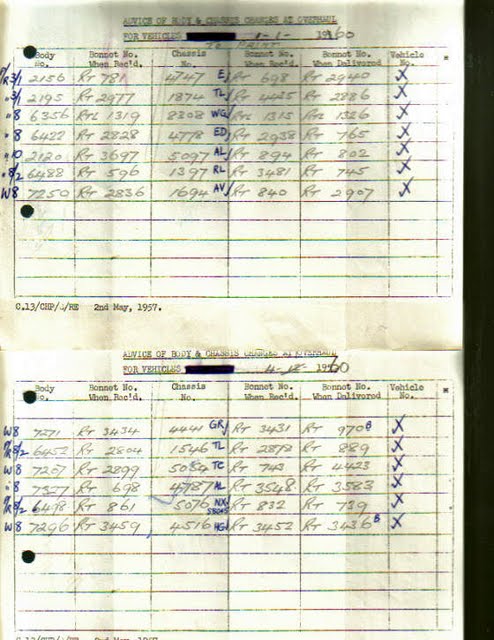 ADVICE OF BODY & CHASSIS CHANGES AT OVERHAUL
FOR VEHICLES 1-1- 1960
TO PAINT
Body No. Bonnet No. When Rec'd. Chassis No. Bonnet No. When Rec'd. Bonnet No. When Delivered Vehicle No. *
3/1 2156 RT 781 4747 E RT 698 RT 2940 X
" 3/1 2195 RT 2977 1874 TL RT 4425 RT 2886 X
" 8 6356 RTL 1319 8308 WG RTL 1315 RTL 1326 X
" 8 6422 RT 2828 4778 ED RT 2938 RT 765 X
" 10 2120 RT 3697 5097 AL RT 894 RT 802 X
" 8/2 6488 RT 596 1397 RL RT 3481 RT 745 X
W8 7250 RT 2836 1694 AV RT 840 RT 2907 X
C.13/CHP/ /RE 2nd May, 1957.
ADVICE OF BODY & CHASSIS CHANGES AT OVERHAUL
FOR VEHICLES 1960
Body No. Bonnet No. When Rec'd. Chassis No. Bonnet No. When Rec'd. Bonnet No. When Delivered Vehicle No. *
W8 7271 RT 3434 4441 GR RT 3431 RT 970 B X
8/2 6452 RT 2804 1546 TL RT 2873 RT 889 X
W8 7207 RT 2899 5084 TC RT 743 RT 4423 X
" 8 7327 RT 698 4787 AL RT 3548 RT 3583 X
8/2 6498 RT 861 5076 NX RT 832 RT 739 X
W8 7296 RT 3459 4516 HG RT 3452 RT 3436 B X